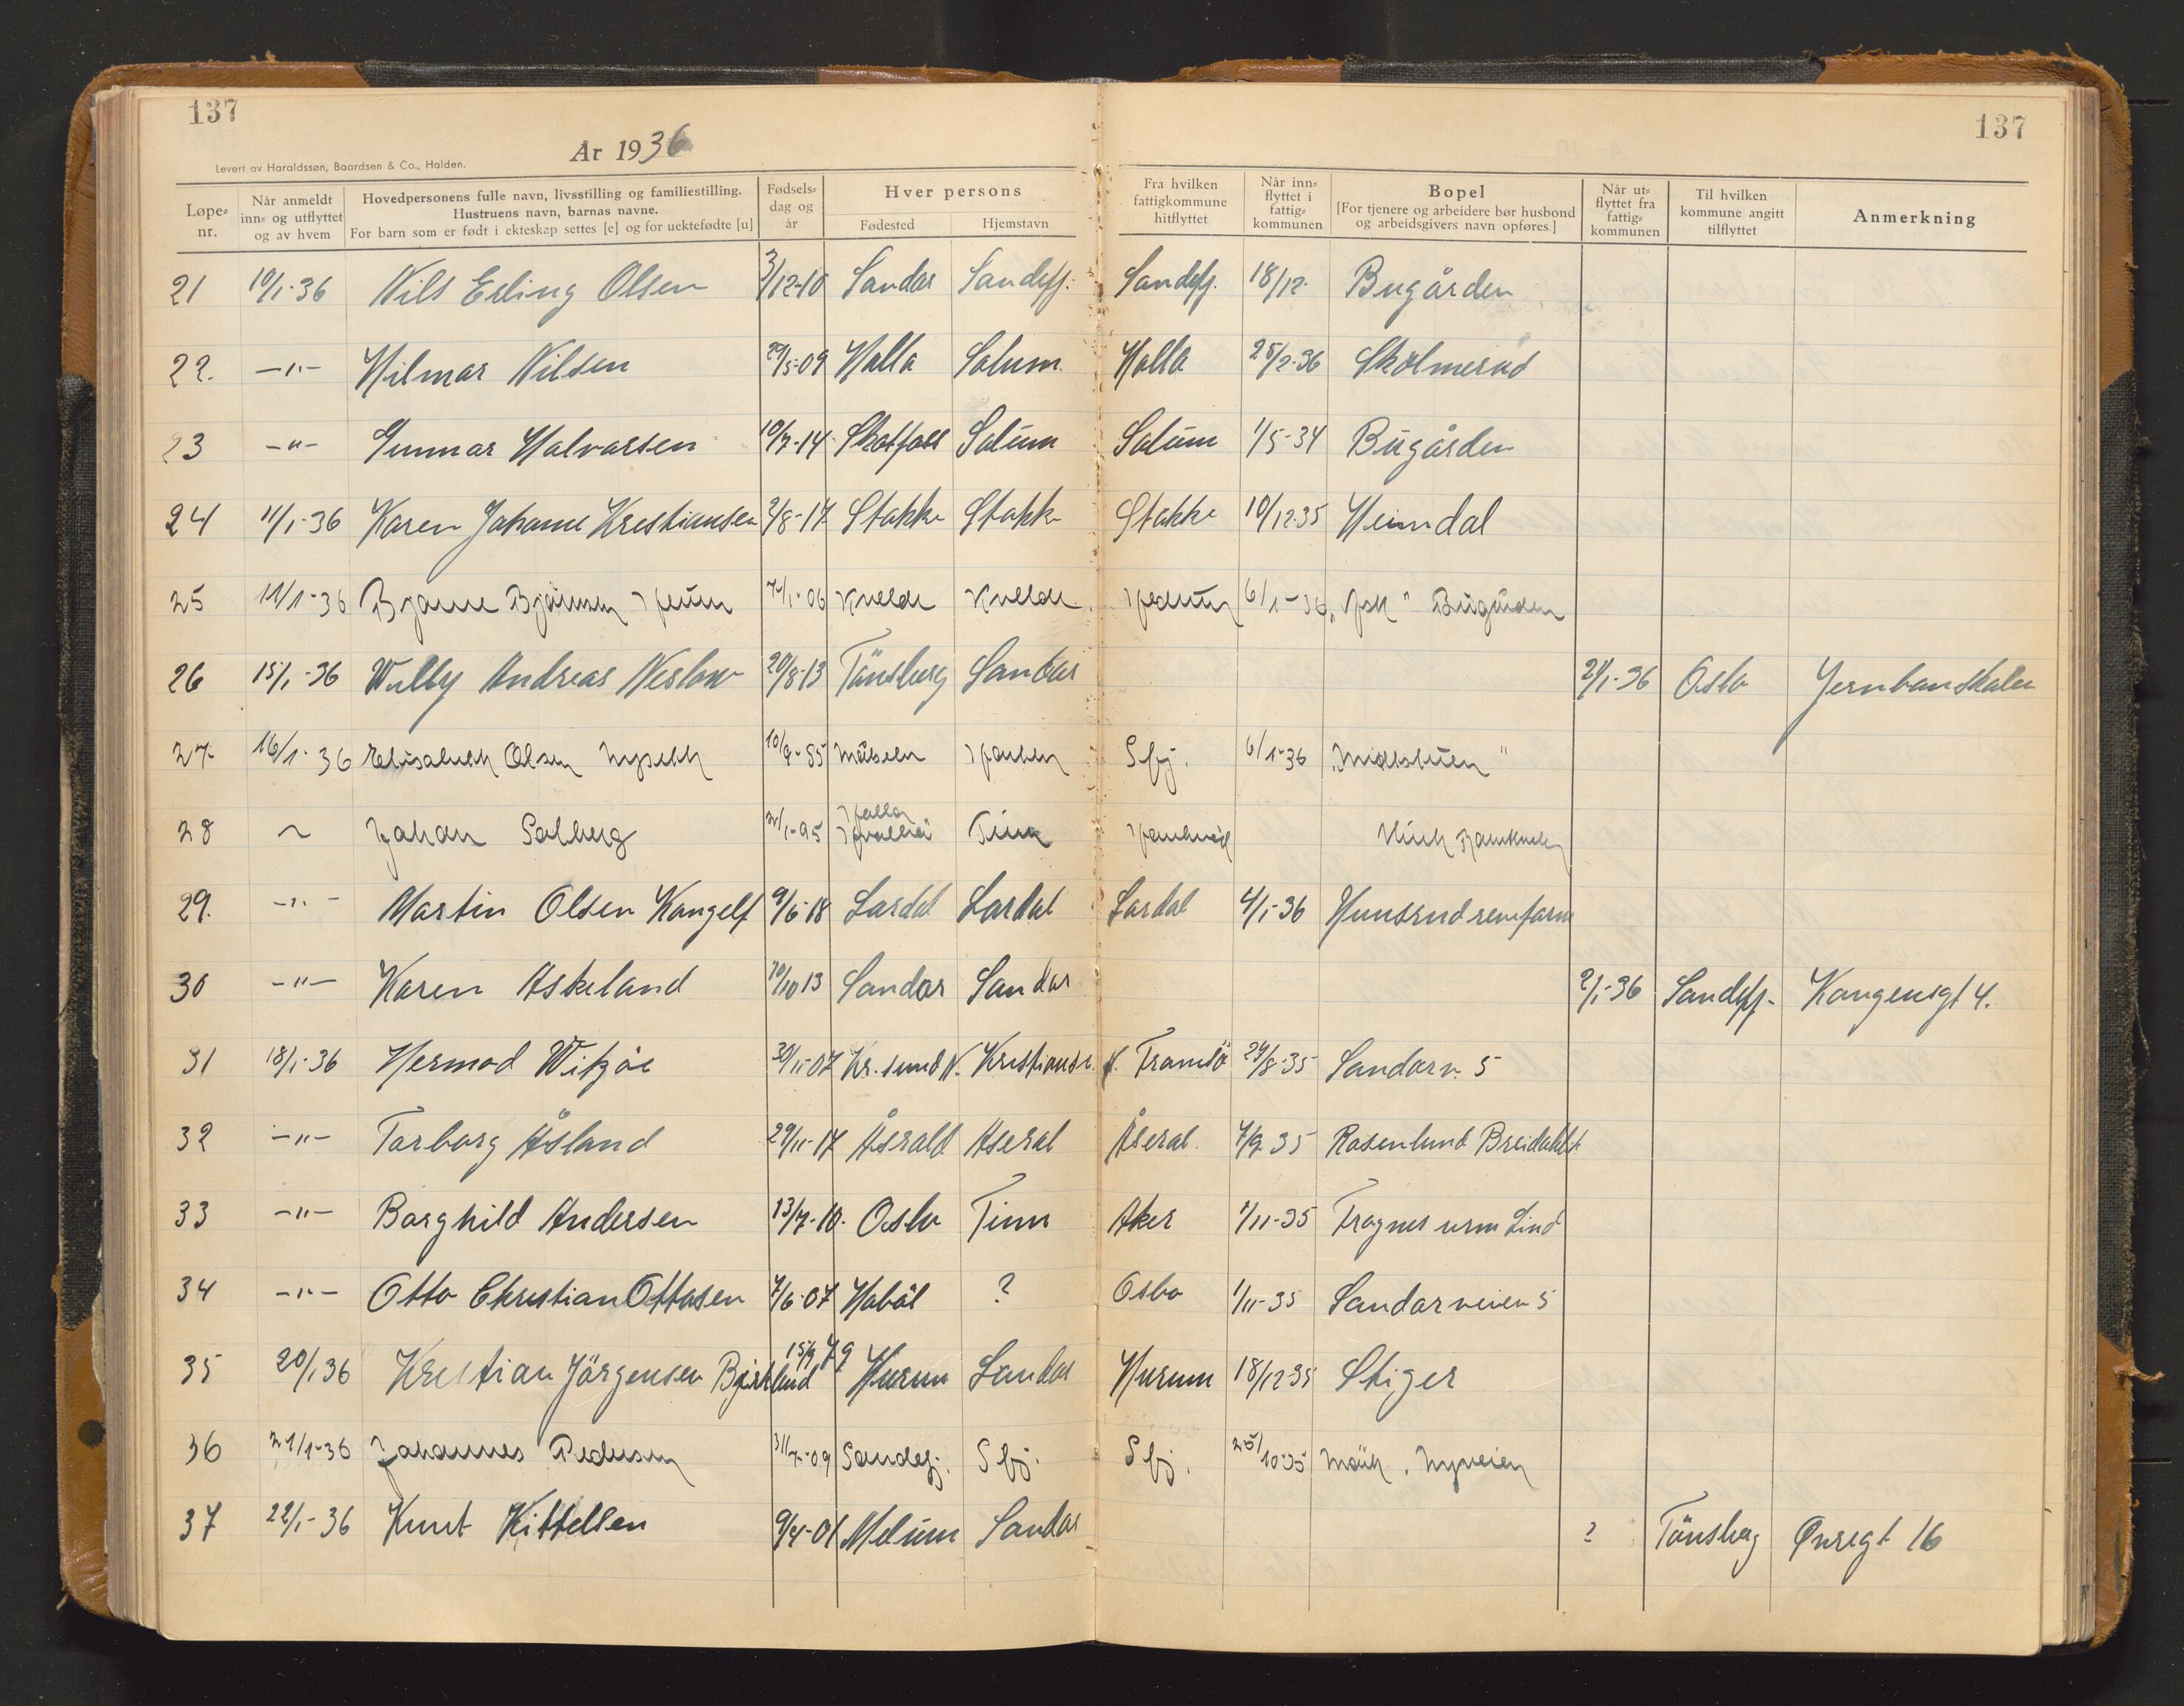 137
137
År 1936
Levert av Haraldssøn, Baardsen & Co., Halden.
Løpe-nr. | Når anmeldt inn- og utflyttet og av hvem | Hovedpersonens fulle navn, livsstilling og familiestilling. Hustruens navn, barnas navne. For barn som er født i ekteskap settes [e] og for uektefødte [u] | Fødsels-dag og år | Hver persons Fødested | Hjemstavn | Fra hvilken fattigkommune hitflyttet | Når inn-flyttet i fattig-kommunen | Bopel [For tjenere og arbeidere bør husbond og arbeidsgivers navn opføres.] | Når ut-flyttet fra fattig-kommunen | Til hvilken kommune angitt tilflyttet | Anmerkning
21 10/1-36 Nils Erling Olsen 3/12-10 Sandar Sandefj. Sandefj. 18/12. Bugården
22. -"- Hilmar Nilsen 29/5-09 Holla Solum. Holla 25/2-36 Skolmerød
23 -"- Gunnar Halvorsen 10/7-14 Skotfoss Solum Solum 1/5-34 Bugården
24 11/1-36 Karen Johanne Kristiansen 3/8-17 Stokke Stokke Stokke 10/12-35 Heimdal
25 11/1-36 Bjarne 7/1-06 Kvelde Kvelde Hedrum 6/1-36 "Ask" Bugården
26 15/1-36 Willy Andreas 20/8-13 Tönsberg Sandar 21/1-36 Oslo Jernbanskolen
27. 16/1-36 Elisabeth Olsen Nyseth 10/9-85 Sfj. 6/1-36 "Midtstuen"
28 Johan Solberg 21/1-95 Tinn
29. -"- Martin Olsen 9/6-18 Lardal Lardal Lardal 4/1-36 Hunsrud revefarm
30 -"- Karen Askeland 30/10 13 Sandar Sandar 2/1-36 Sandefj. Kongensgt 4.
31 18/1-36 Hermod Wikjöe 30/11-07 Kr.sund N. Kristians. N. Tromsö 29/8-35 Sandarv. 5
32 -"- Torborg Åsland 29/11-17 Åserald Åseral Åseral. 7/9 35 Rosenlund
33 -"- Borghild Andersen 13/7-10. Oslo Tinn Aker 1/11-35 Fragnes Lind
34 -"- Otto Christian Ottosen 7/6-07 Hoböl ? Oslo 1/11-35 Sandarveien 5
35 20/1 36 Kristian Jörgensen Björklund 15/9 79 Hurum Sandar Hurum 18/12-35 Stiger
36 21/1-36 Johannes Pedersen 31/7-09 Sandefj. Sfj. Sfj. 25/10-35 Nyveien
37 22/1-36 Knut Kittelsen 9/4-01 Melum Sandar ? Tönsberg Øvregt 16